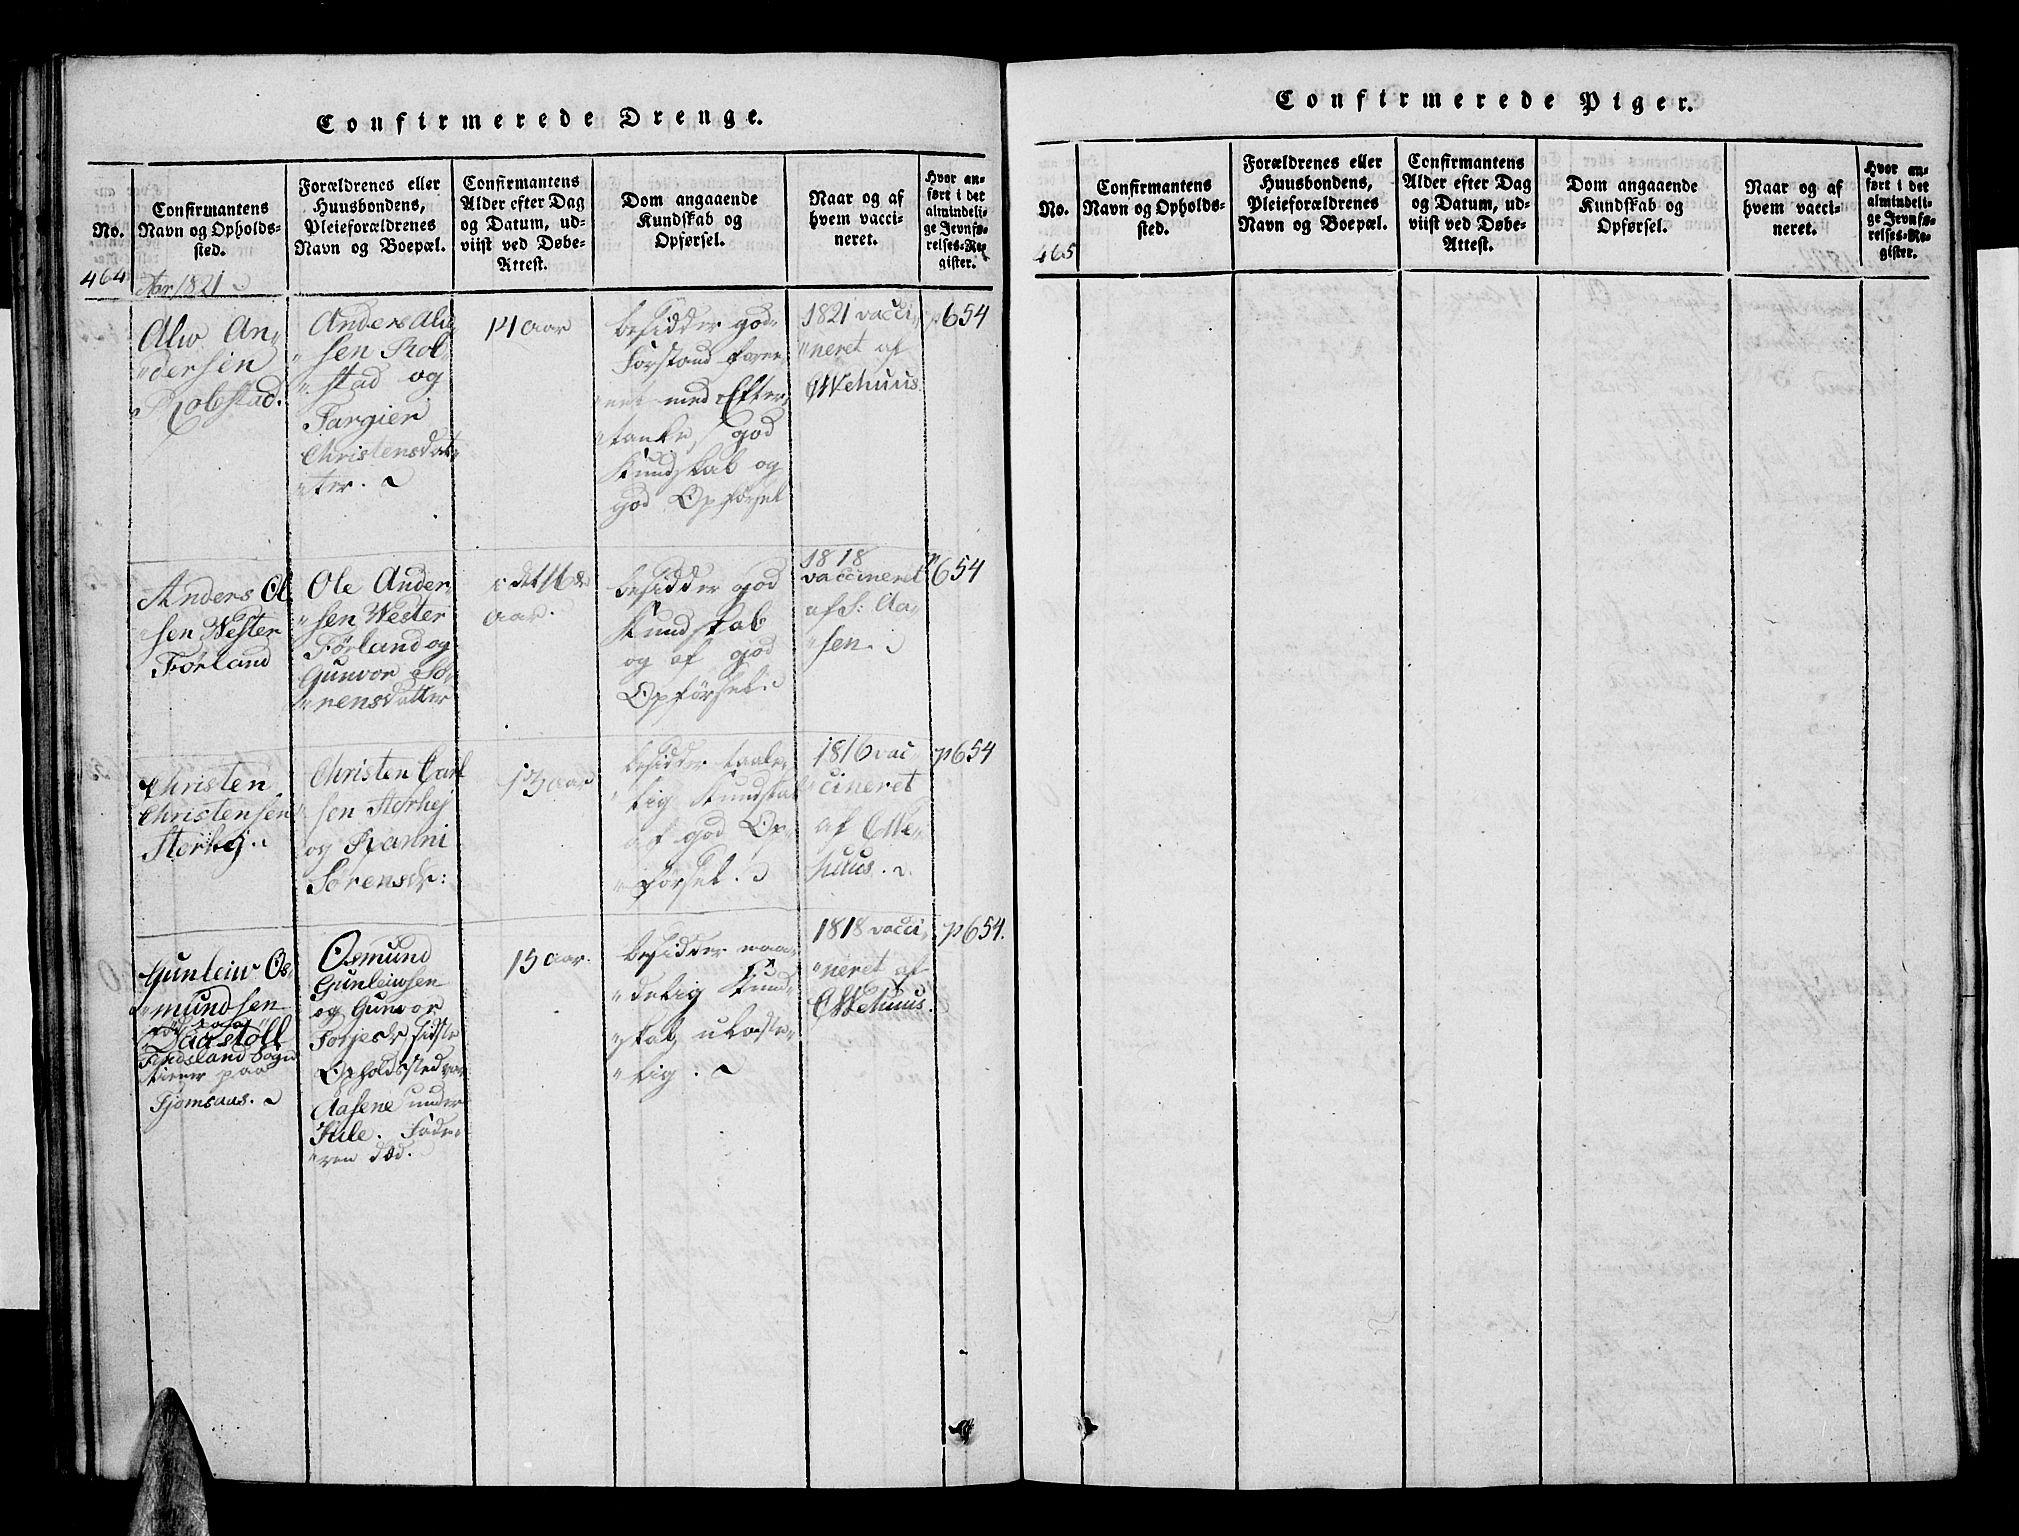 Confirmerede Drenge.
No.
Confirmantens
Navn og Opholds-
sted.
Forældrenes eller
Huusbondens,
Pleieforældrenes
Navn og Boepæl.
Confirmantens
Alder efter Dag
og Datum, ud-
viist ved Døbe-
Attest.
Dom angaaende
Kundskab og
Opførsel.
Naar og af
hvem vacci-
neret.
Hvor an-
ført i det
almindeli-
ge Jevnfø-
relses-Re-
gister.
464
Aar 1821
Alw An-
"dersen
Robstad.
Anders Alw
"sen Rob-
"stad og
Targier
Christensdat-
"ter.
14 Aar
besidder god
Forstand foree-
net med Efter-
"tanke, god
Kundskab og
god Opførsel
1821 vacci-
"neret af
O Wehuus
p 654
Anders Ol
"sen Wester
Førland
Ole Ander
"sen Wester
Førland og
Gunvor Sø-
"rensdatter
i det 16de
Aar.
besidder god
Kundskab
og af god
Opførsel.
1818
vaccineret
af S: Aa-
"sen.
p 654
Christen
Christensen
Størhej.
Christen Carl
sen Størhej
og Ranni
Sørensdr:
besidder taale-
"lig Kundskab
af god Op-
"førsel.
1816 vac
"cineret
af O We-
huus.
p 654
Gunleiw Os-
"mundsen
Daastöll
Findsland Sogn
tiener paa
Tjomsaas.
Osmund
Gunleiwsen
og Gunvor
Torjesdr sidste
Opholdssted var
Aasene under
Kile. Fade-
"ren död.
15 Aar.
besidder maa-
"delig Kund-
"skab, ulaste-
"lig.
1818 vacci
"neret af
O Wehuus.
p 654.
Confirmerede Piger.
No.
Confirmantens
Navn og Opholds-
sted.
Forældrenes eller
Huusbondens,
Pleieforældrenes
Navn og Boepæl.
Confirmantens
Alder efter Dag
og Datum, ud-
viist ved Døbe-
Attest.
Dom angaaende
Kundskab og
Opførsel.
Naar og af
hvem vacci-
neret.
Hvor an-
ført i det
almindeli-
ge Jevnfø-
relses-Re-
gister.
465